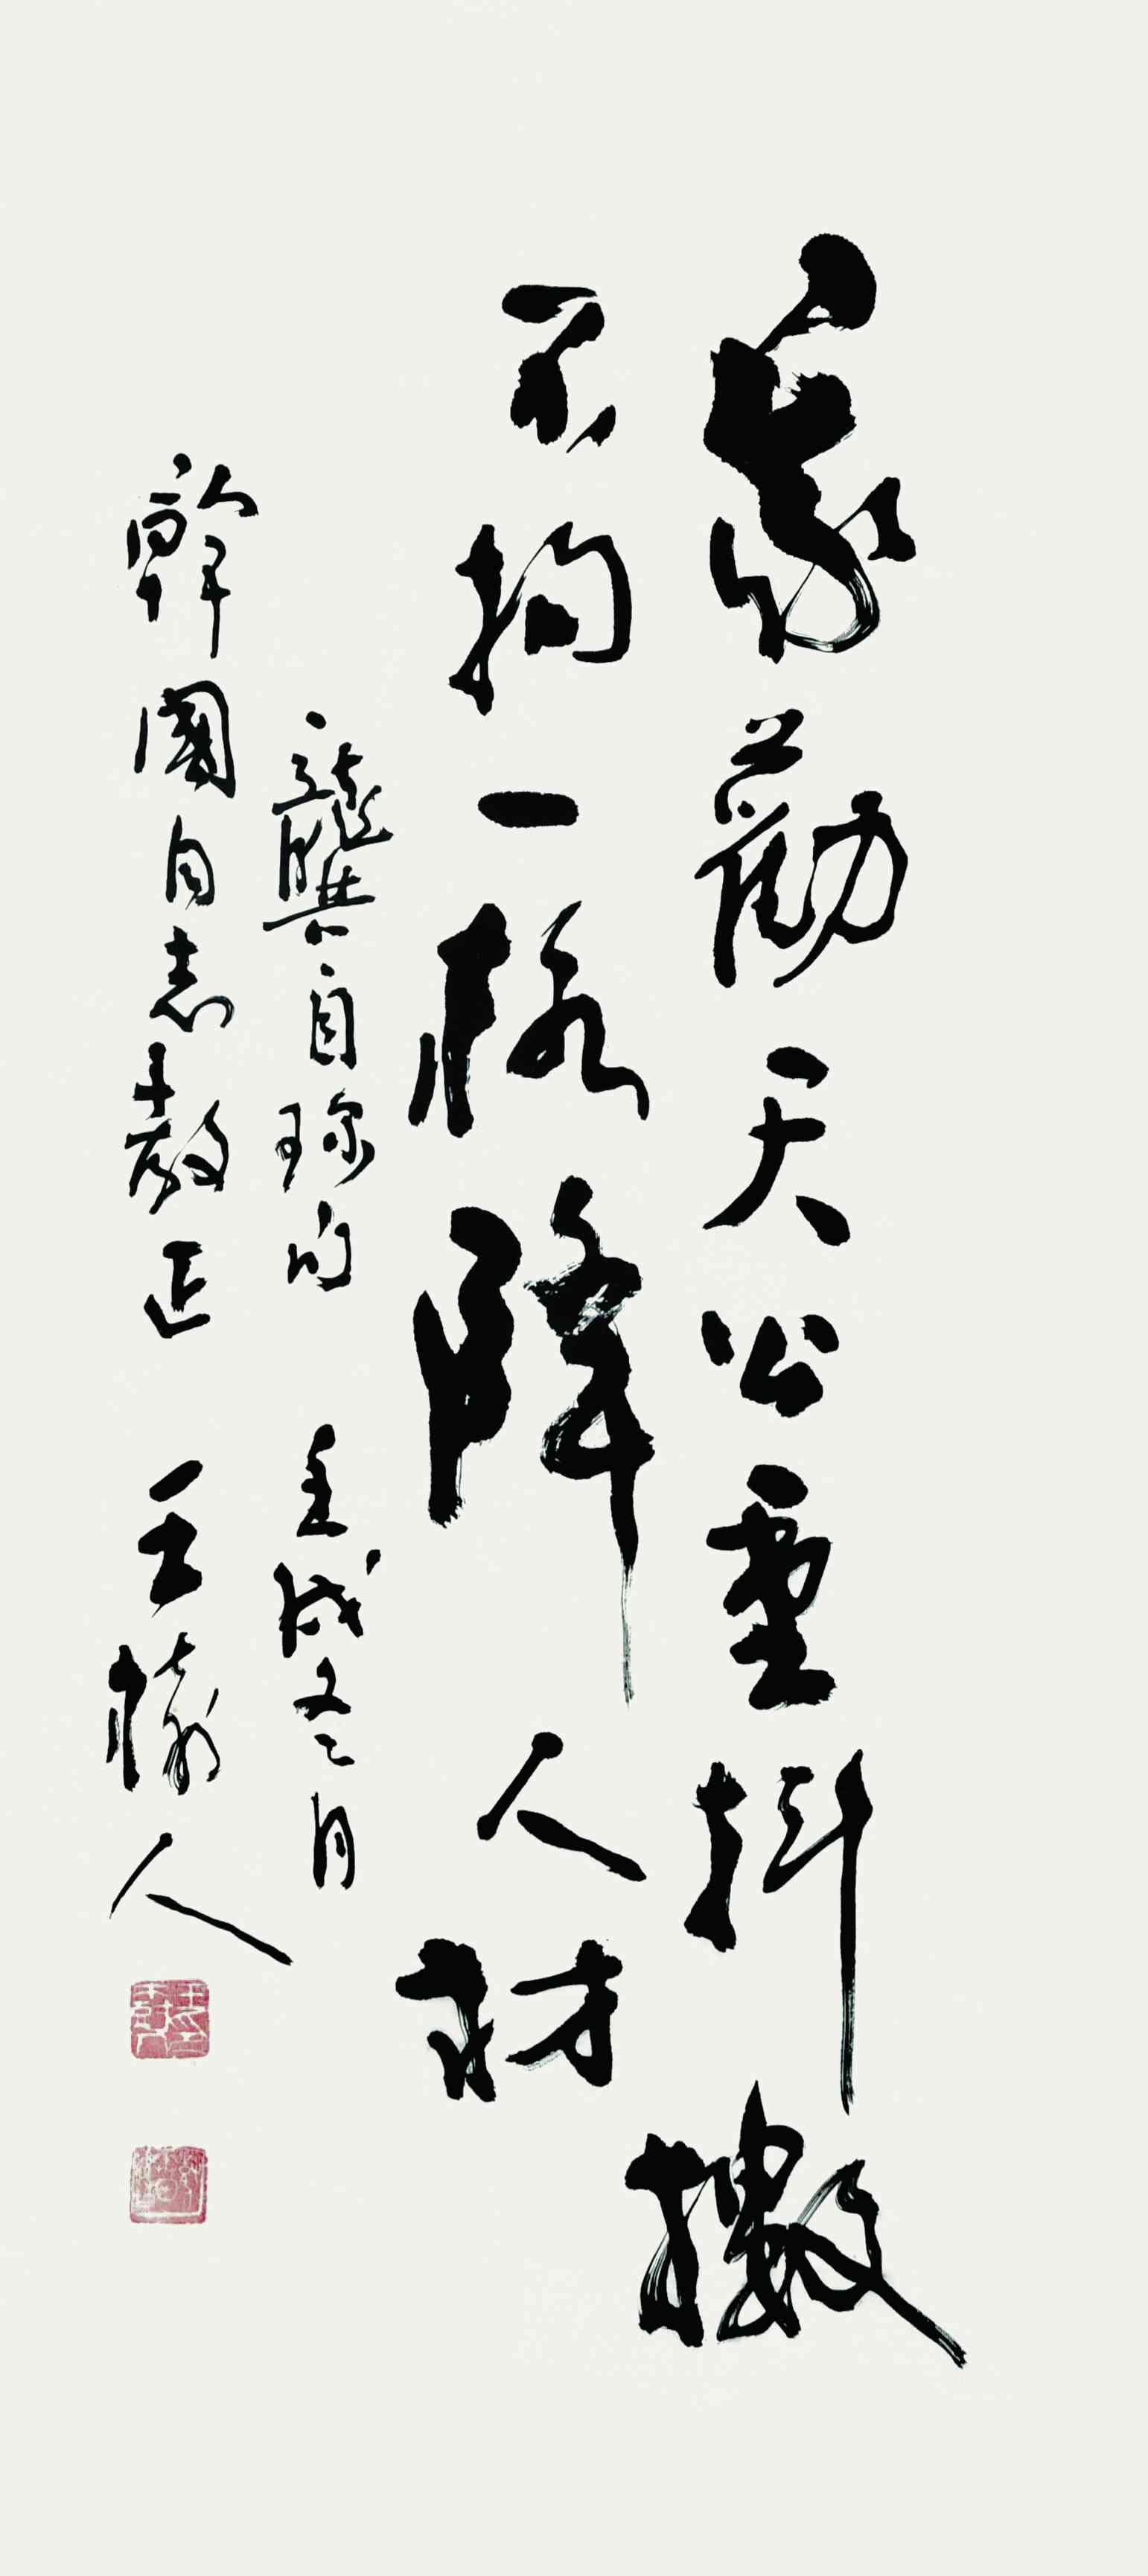 我勸天公重抖擻
不拘一格降人材
龔自珍句 壬戌冬月
幹國同志教正 王檢人